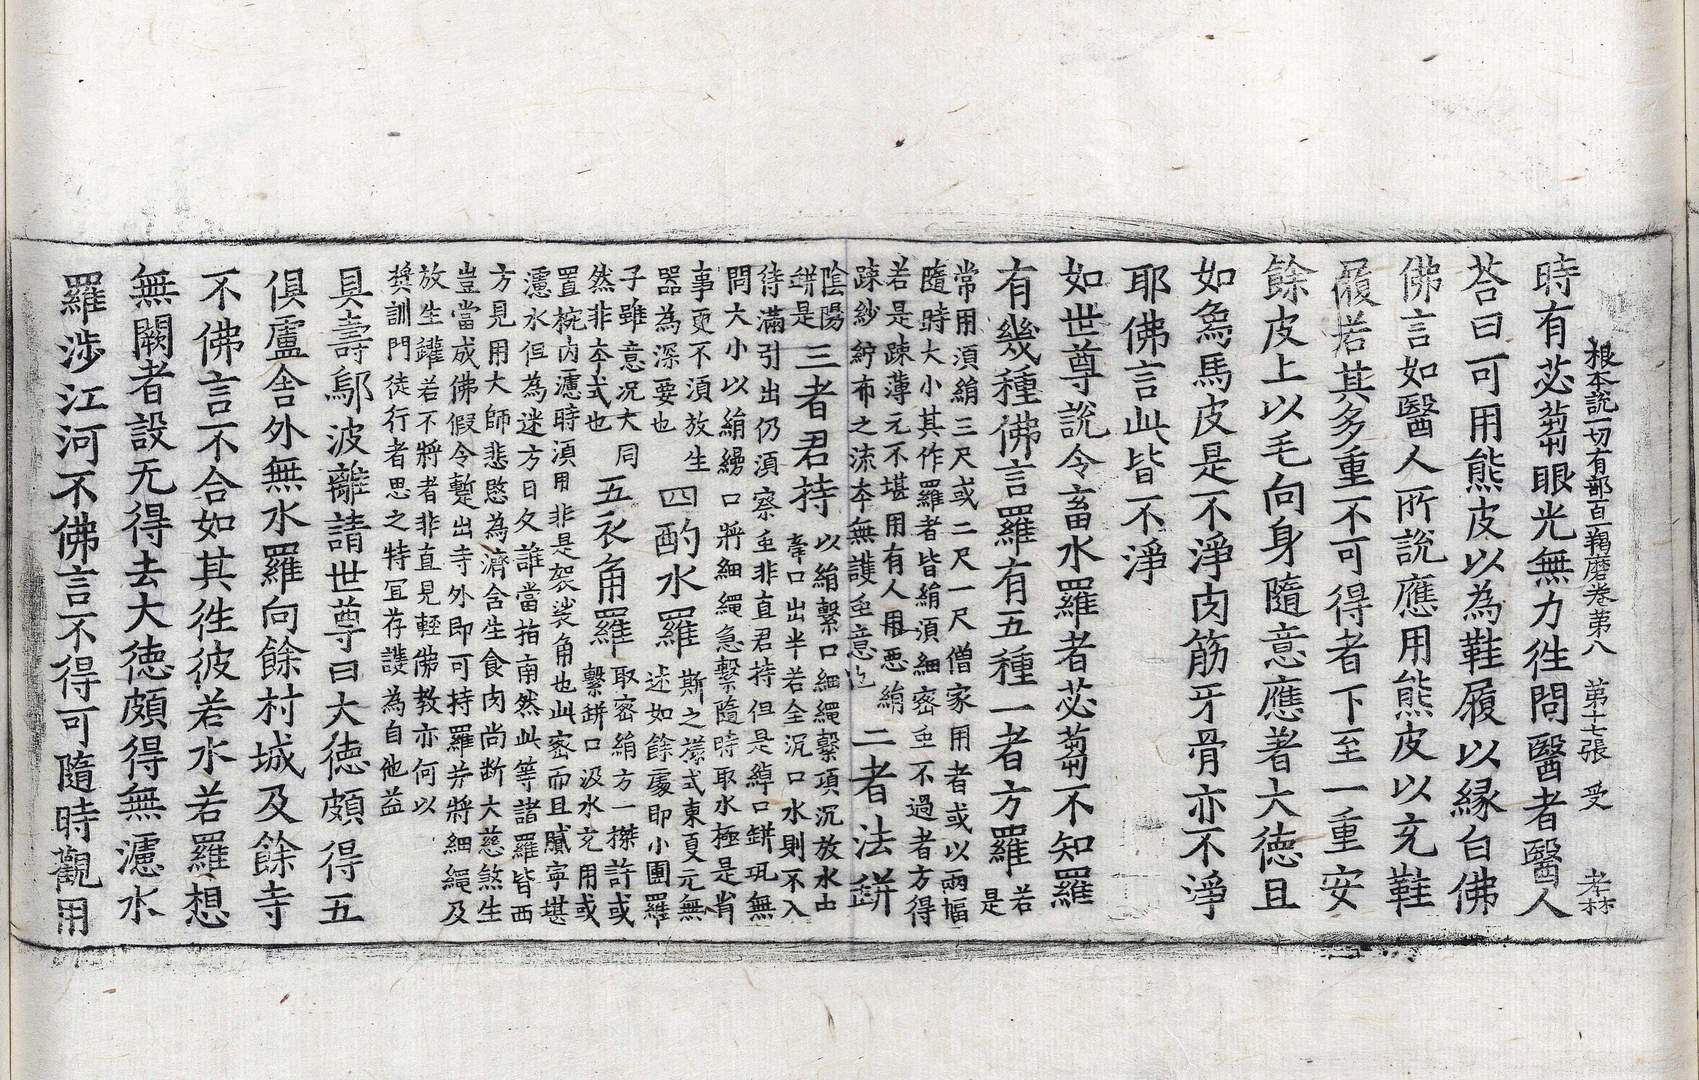 根本說一切有部百一羯磨卷第八　第十七張　受　孝林
時有苾蒭眼光無力往問醫者醫人
荅曰可用熊皮以為鞋履以緣白佛
佛言如醫人所說應用熊皮以充鞋
履若其多重不可得者下至一重安
餘皮上以毛向身隨意應著大德且
如象馬皮是不淨肉筋牙骨亦不淨
耶佛言此皆不淨
如世尊說令畜水羅者苾蒭不知羅
有幾種佛言羅有五種一者方羅若是
常用須絹三尺或二尺一尺僧家用者或以兩幅
隨時大小其作羅者皆絹須細密虫不過者方得
若是踈薄元不堪用有人用惡絹
踈紗紵布之流本無護虫意也
二者法缾
陰陽
缾是
三者君持
以絹繫口細繩繫項沉放水中
擡口出半若全沉口水則不入
待滿引出仍須察虫非直君持但是綽口缾瓨無
問大小以絹縵口將細繩急繫隨時取水極是省
事更不須放生
器為深要也
四酌水羅
斯之樣式東夏元無
述如餘處即小團羅
子雖意况大同
然非本式也
五衣角羅
取密絹方一搩許或
繫缾口汲水充用或
置椀內濾時須用非是袈裟角也此密而且膩寧堪
濾水但為迷方日久誰當指南然此等諸羅皆西
方見用大師悲愍為濟含生食肉尚断大慈煞生
豈當成佛假令暫出寺外即可持羅并將細繩及
放生罐若不將者非直見輕佛教亦何以
獎訓門徒行者思之特冝存護為自他益
具壽鄔波離請世尊曰大德頗得五
俱盧舍外無水羅向餘村城及餘寺
不佛言不合如其往彼若水若羅想
無闕者設无得去大德頗得無濾水
羅涉江河不佛言不得可隨時觀用